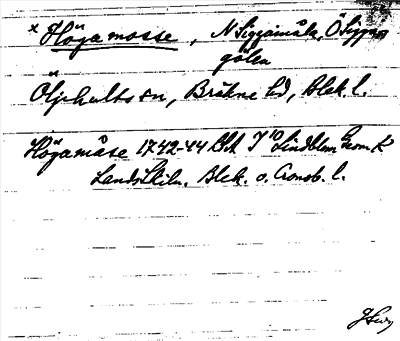 x Högamosse, N Siggamåla, Ö Sigga
gölen
Öljehults sn, Bräkne hd, Blek. l.
Högamåse 1742-44 LSA J 10 Lindblom Geom. K
Landsskiln. Blek. o. Cronob. l.